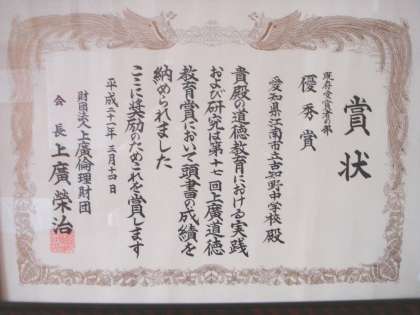 賞状
既存受賞者の部
優秀賞
愛知県江南市立古知野中学校 殿
貴殿の道徳教育における実践
および研究は第十七回上廣道徳
教育賞において頭書の成績を
納められました
ここに奨励のためこれを賞します
平成二十一年 三月十四日
財団法人上廣倫理財団
会長 上廣榮治